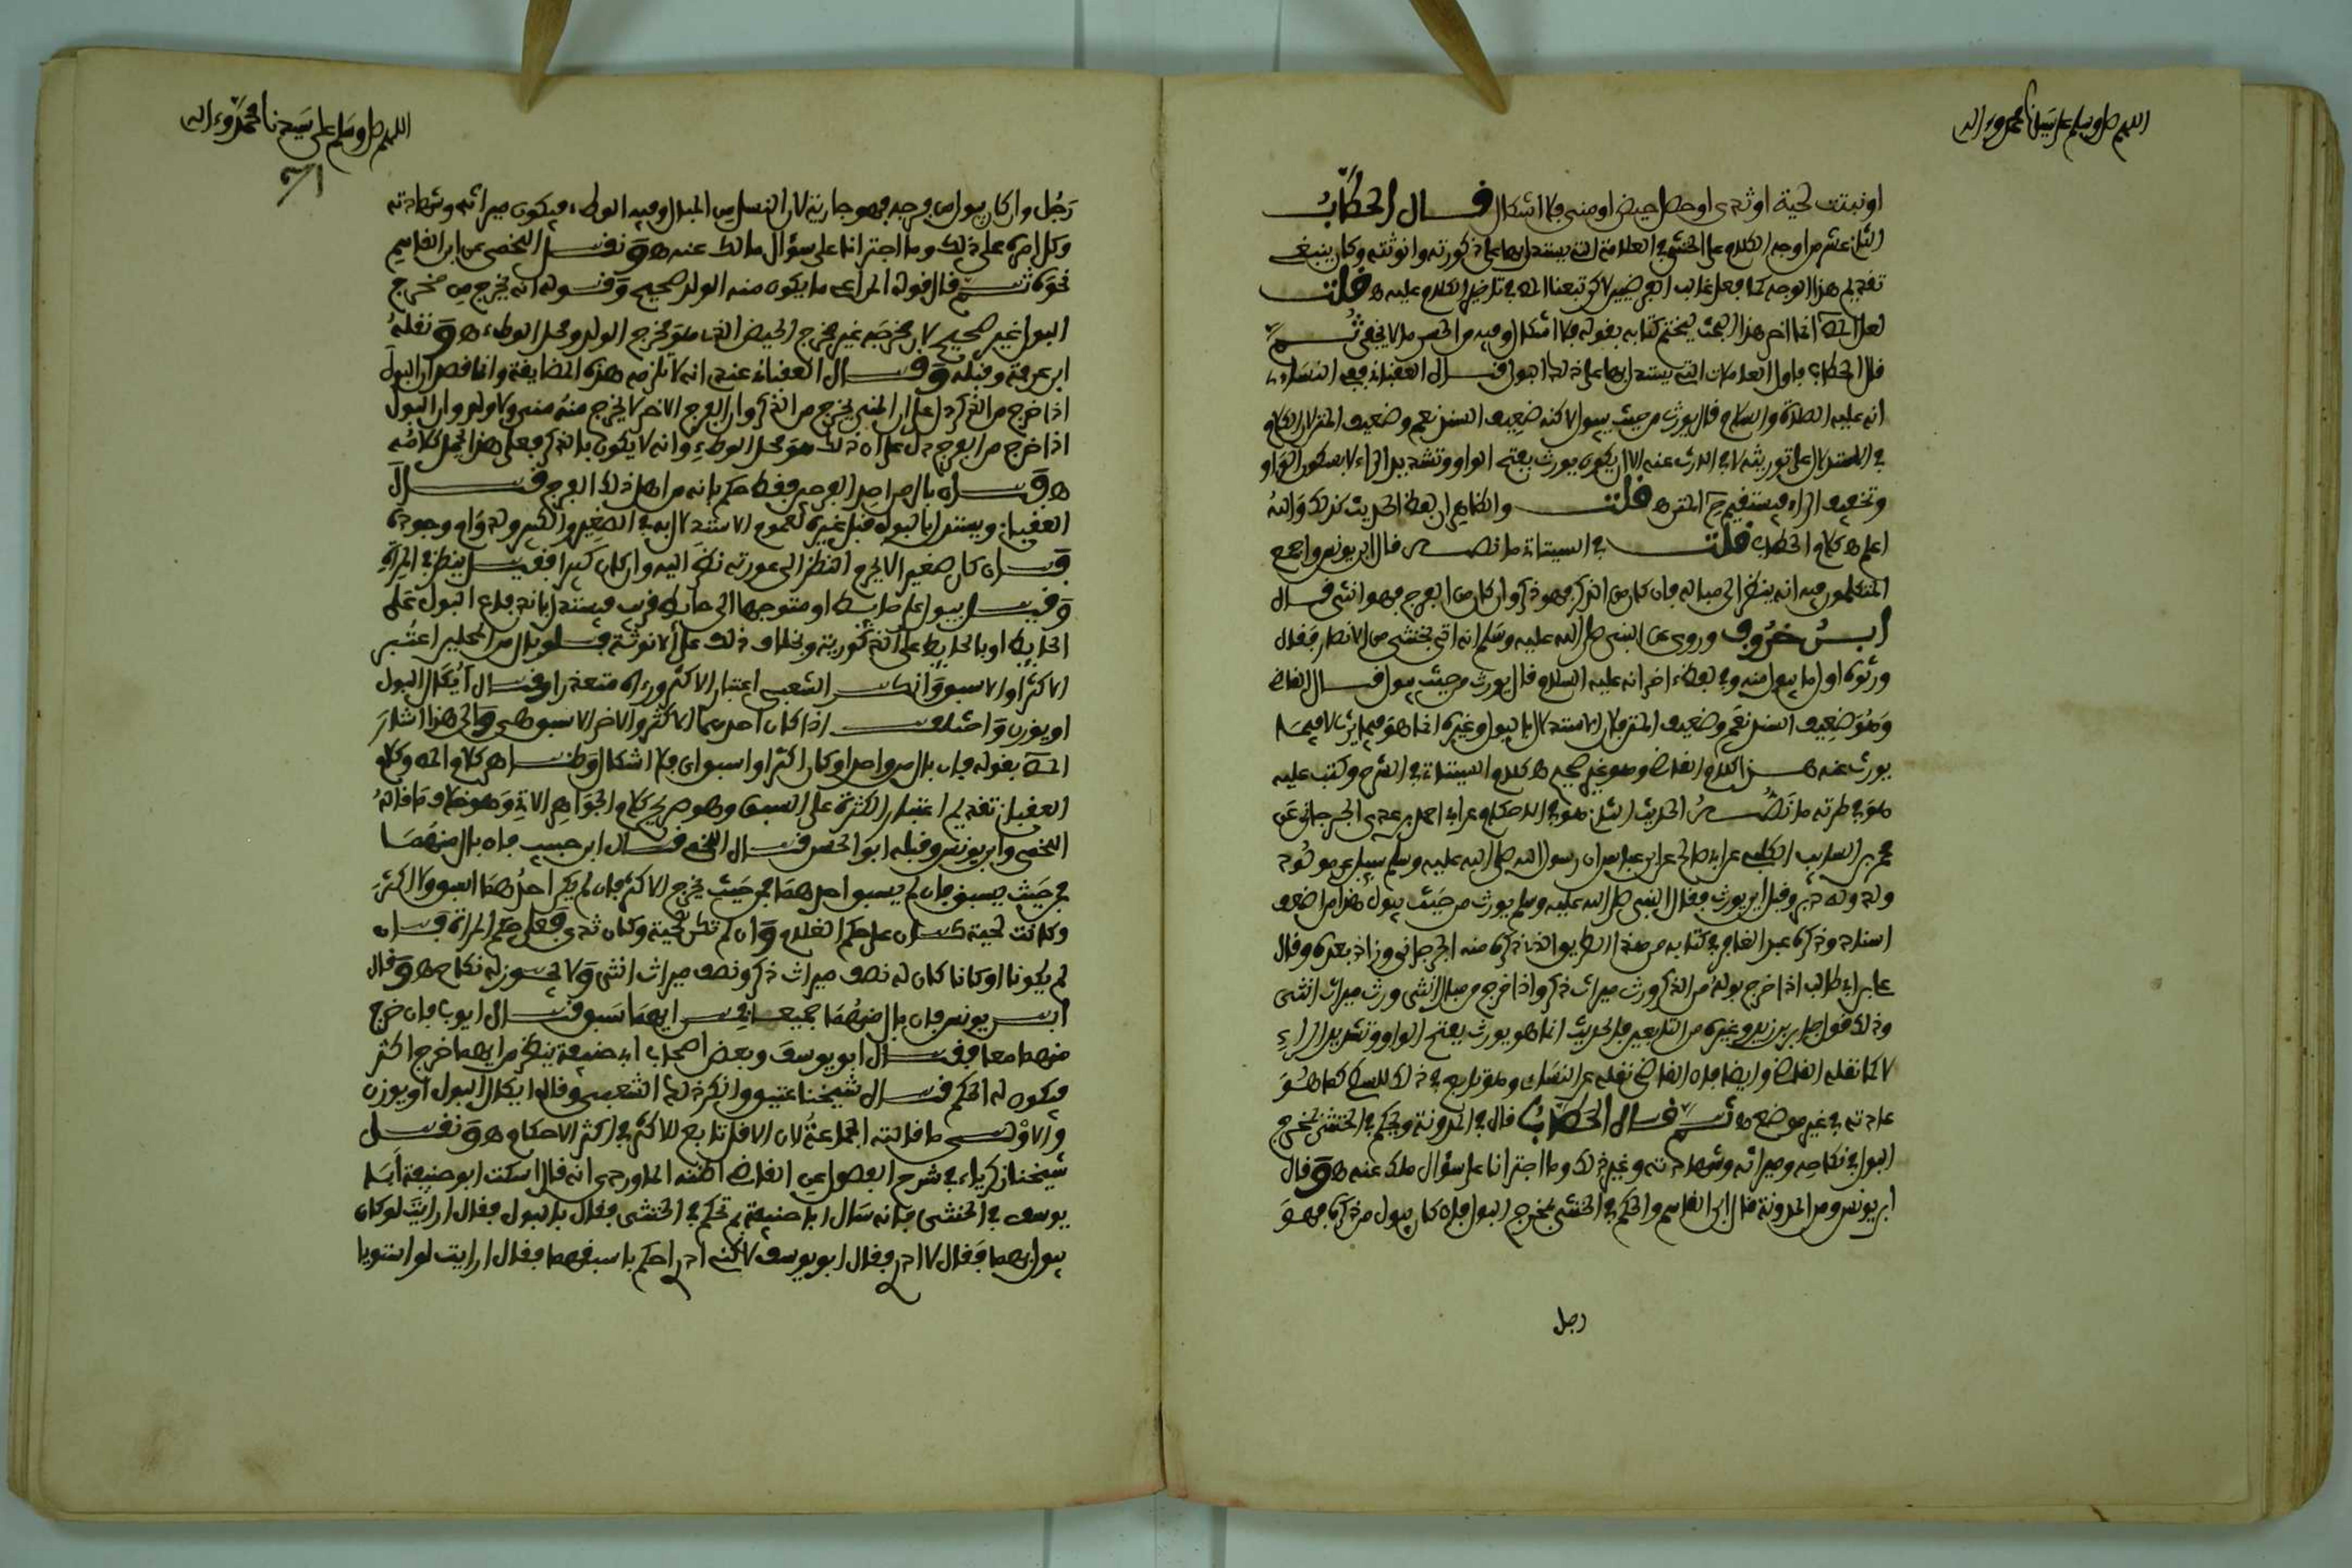 اللهم صل وسلم على سيدنا محمد وءاله
او نبتت لحية او ثدي او حصل حيض او مني فلا اشكال قال الحطاب
الثاني عشر من اوجه الكلام على الخنثى في العلامة التي يستدل بها على ذكورته وانوثته وكان ينبغي
تقديم هذا الوجه كما فعل غالب الفرضيين لاكن تبعنا المص في تاخير الكلام عليه ه قلت
لعل المص انما اخر هذا البحث ليختم كتابه بقوله فلا اشكال وفيه من الحسن ما لا يخفى ثم
قال الحطاب فاول العلامات التي يستدل بها على ذلك البول قال العقباني ففي النساءي
انه عليه الصلاة والسلام قال يورث من حيث يبول لاكنه ضعيف السند نعم وضعيف المتن لان الكلام
في الاستدلال على توريثه لا في الارث عنه الا ان يكون يورث بفتح الواو وتشديد الراء لا بسكون الواو
وتخفيف الراء فيستقيم ح المتن ه قلت والظاهر ان لفظ الحديث كذلك والله
اعلم ه كلام الحطاب قلت في السيتاني ما نصه قال ابن يونس واجمع
المتكلمون فيه انه ينظر الى مباله فان كان من الذكر فهو ذكر وان كان من الفرج فهو انثى قال
ابن خروف وروي عن النبي صلى الله عليه وسلم انه اتي بخنثى من الانصار فقال
ورثوه اول ما يبول منه وفي لفظ ءاخر انه عليه السلام قال يورث من حيث يبول قال القاضي
وهو ضعيف السند نعم وضعيف المتن فان الاستدلال بالبول وغيره انما هو فيما يرث لا فيما
يورث عنه هذا كلام القاضي وهو غير صحيح ه كلام السيتاني في الشرح وكتب عليه
هو في طرته ما نصه الحديث الثاني هو في الاحكام عن ابي احمد بن عدي الجرجاني عن
محمد بن السايب الكلبي عن ابي صالح عن ابن عباس ان رسول الله صلى الله عليه وسلم سيل عن مولود
ولد وله دبر وقبل اين يورث فقال النبي صلى الله عليه وسلم يورث من حيث يبول هذا من اضعف
اسناد وذكره عبد الغافر في كتابه من هذا الطريق الذي ذكره منه الجرجاني وزاد بعده وقال
علي بن ابي طالب اذا خرج بوله من الذكر ورث ميراث ذكر واذا خرج من مبال الانثى ورث ميراث انثى
وذلك قول جابر بن زيد وغيره من التابعين فالحديث انما هو يورث بفتح الواو وتشديد الراء
لا كما نقله القاضي وايضا فان القاضي نقله عن النساي وهو تابع في ذلك للسطي كما هو
عادته في غير موضع ه ثم قال الحطاب قال في المدونة ويحكم في الخنثى بمخرج
البول في نكاحه وميراثه وشهادته وغير ذلك وما اجترانا على سؤال ملك عنه ه وقال
ابن يونس ومن المدونة قال ابن القاسم والحكم في الخنثى بمخرج البول فان كان يبول من ذكره فهو
رجل
اللهم صل وسلم على سيدنا محمد وءاله
رجل وان كان يبول من فرجه فهو جارية لان النسل من المبال وفيه الوطء فيكون ميراثه وشهادته
وكل امره على ذلك وما اجترانا على سؤال مالك عنه ه ونقل اللخمي عن ابن القاسم
نحوه ثم قال قوله المراعى ما يكون منه الولد صحيح وقوله انه يخرج من مخرج
البول غير صحيح لان مخرجه غير مخرج الحيض الذي هو مخرج الولد ومحل الوطء ه ونقله
ابن عرفة وقبله وقال العقباني عندي انه لا تلزمه هذه المضايقة وانما قصد ان البول
اذا خرج من الذكر دل على ان المني يخرج من الذكر وان الفرج الاخر لا يخرج منه مني ولا ولد وان البول
اذا خرج من الفرج دل على ان ذلك هو محل الوطء وانه لا يكون بالذكر فعلى هذا يحمل كلامه
ه وان بال من احد الفرجين فقط حكم بانه من اهل ذلك الفرج قال
العقباني ويستدل بالبول قبل غيره لعموم الاستدلال به في الصغير والكبير ولدوام وجوده
فان كان صغيرا لا يحرم النظر الى عورته نظر اليه وان كان كبيرا فقيل ينظر في المرءاة
وقيل يبول على حايط او متوجها الى حايط قريب فيستدل باندفاع البول على
الحايط او بالحايط على الذكورية وبخلاف ذلك على الانوثة فلو بال من المحلين اعتبر
الاكثر او الاسبق وانكر الشعبي اعتبار الاكثر ورءاه متعذرا وقال ايكال البول
او يوزن واختلف اذا كان احدهما الاكثر والاخر الاسبق ه والى هذا اشار
المص بقوله فان بال من واحد او كان اكثر او اسبق فلا اشكال وظاهر كلام المص وكلام
العقباني تقديم اعتبار الكثرة على السبق وهو صريح كلام الجواهر الاتي وهو خلاف ما قاله
اللخمي وابن يونس وقبله ابو الحسن قال اللخمي قال ابن حبيب فان بال منهما
فمن حيث يسبق فان لم يسبق احدهما فمن حيث يخرج الاكثر فان لم يكن احدهما اسبق ولا اكثر
وكانت لحية كان على حكم الغلام وان لم تكن لحية وكان ثدي فعلى حكم المراة فان
لم يكونا او كانا كان له نصف ميراث ذكر ونصف ميراث انثى ولا يجوز له نكاح ه وقال
ابن يونس فان بال منهما جميعا فمن ايهما سبق قال ايوب فان خرج
منهما معا فقال ابو يوسف وبعض اصحاب ابي حنيفة ينظر من ايهما خرج اكثر
فيكون له الحكم قال شيخنا عتيق وانكر ذلك الشعبي وقال ايكال البول او يوزن
والاول ما قالته الجماعة لان الاقل تابع للاكثر في اكثر الاحكام ه ونقل
شيخنا زكرياء في شرح الفصول عن القاضي اظنه الماوردي انه قال اسكت ابو حنيفة ابا
يوسف في الخنثى فانه سال ابا حنيفة بم تحكم في الخنثى فقال بالبول فقال ارايت لو كان
يبول بهما فقال لا ادري فقال ابو يوسف لاكني ادري احكم باسبقهما فقال ارايت لو استويا